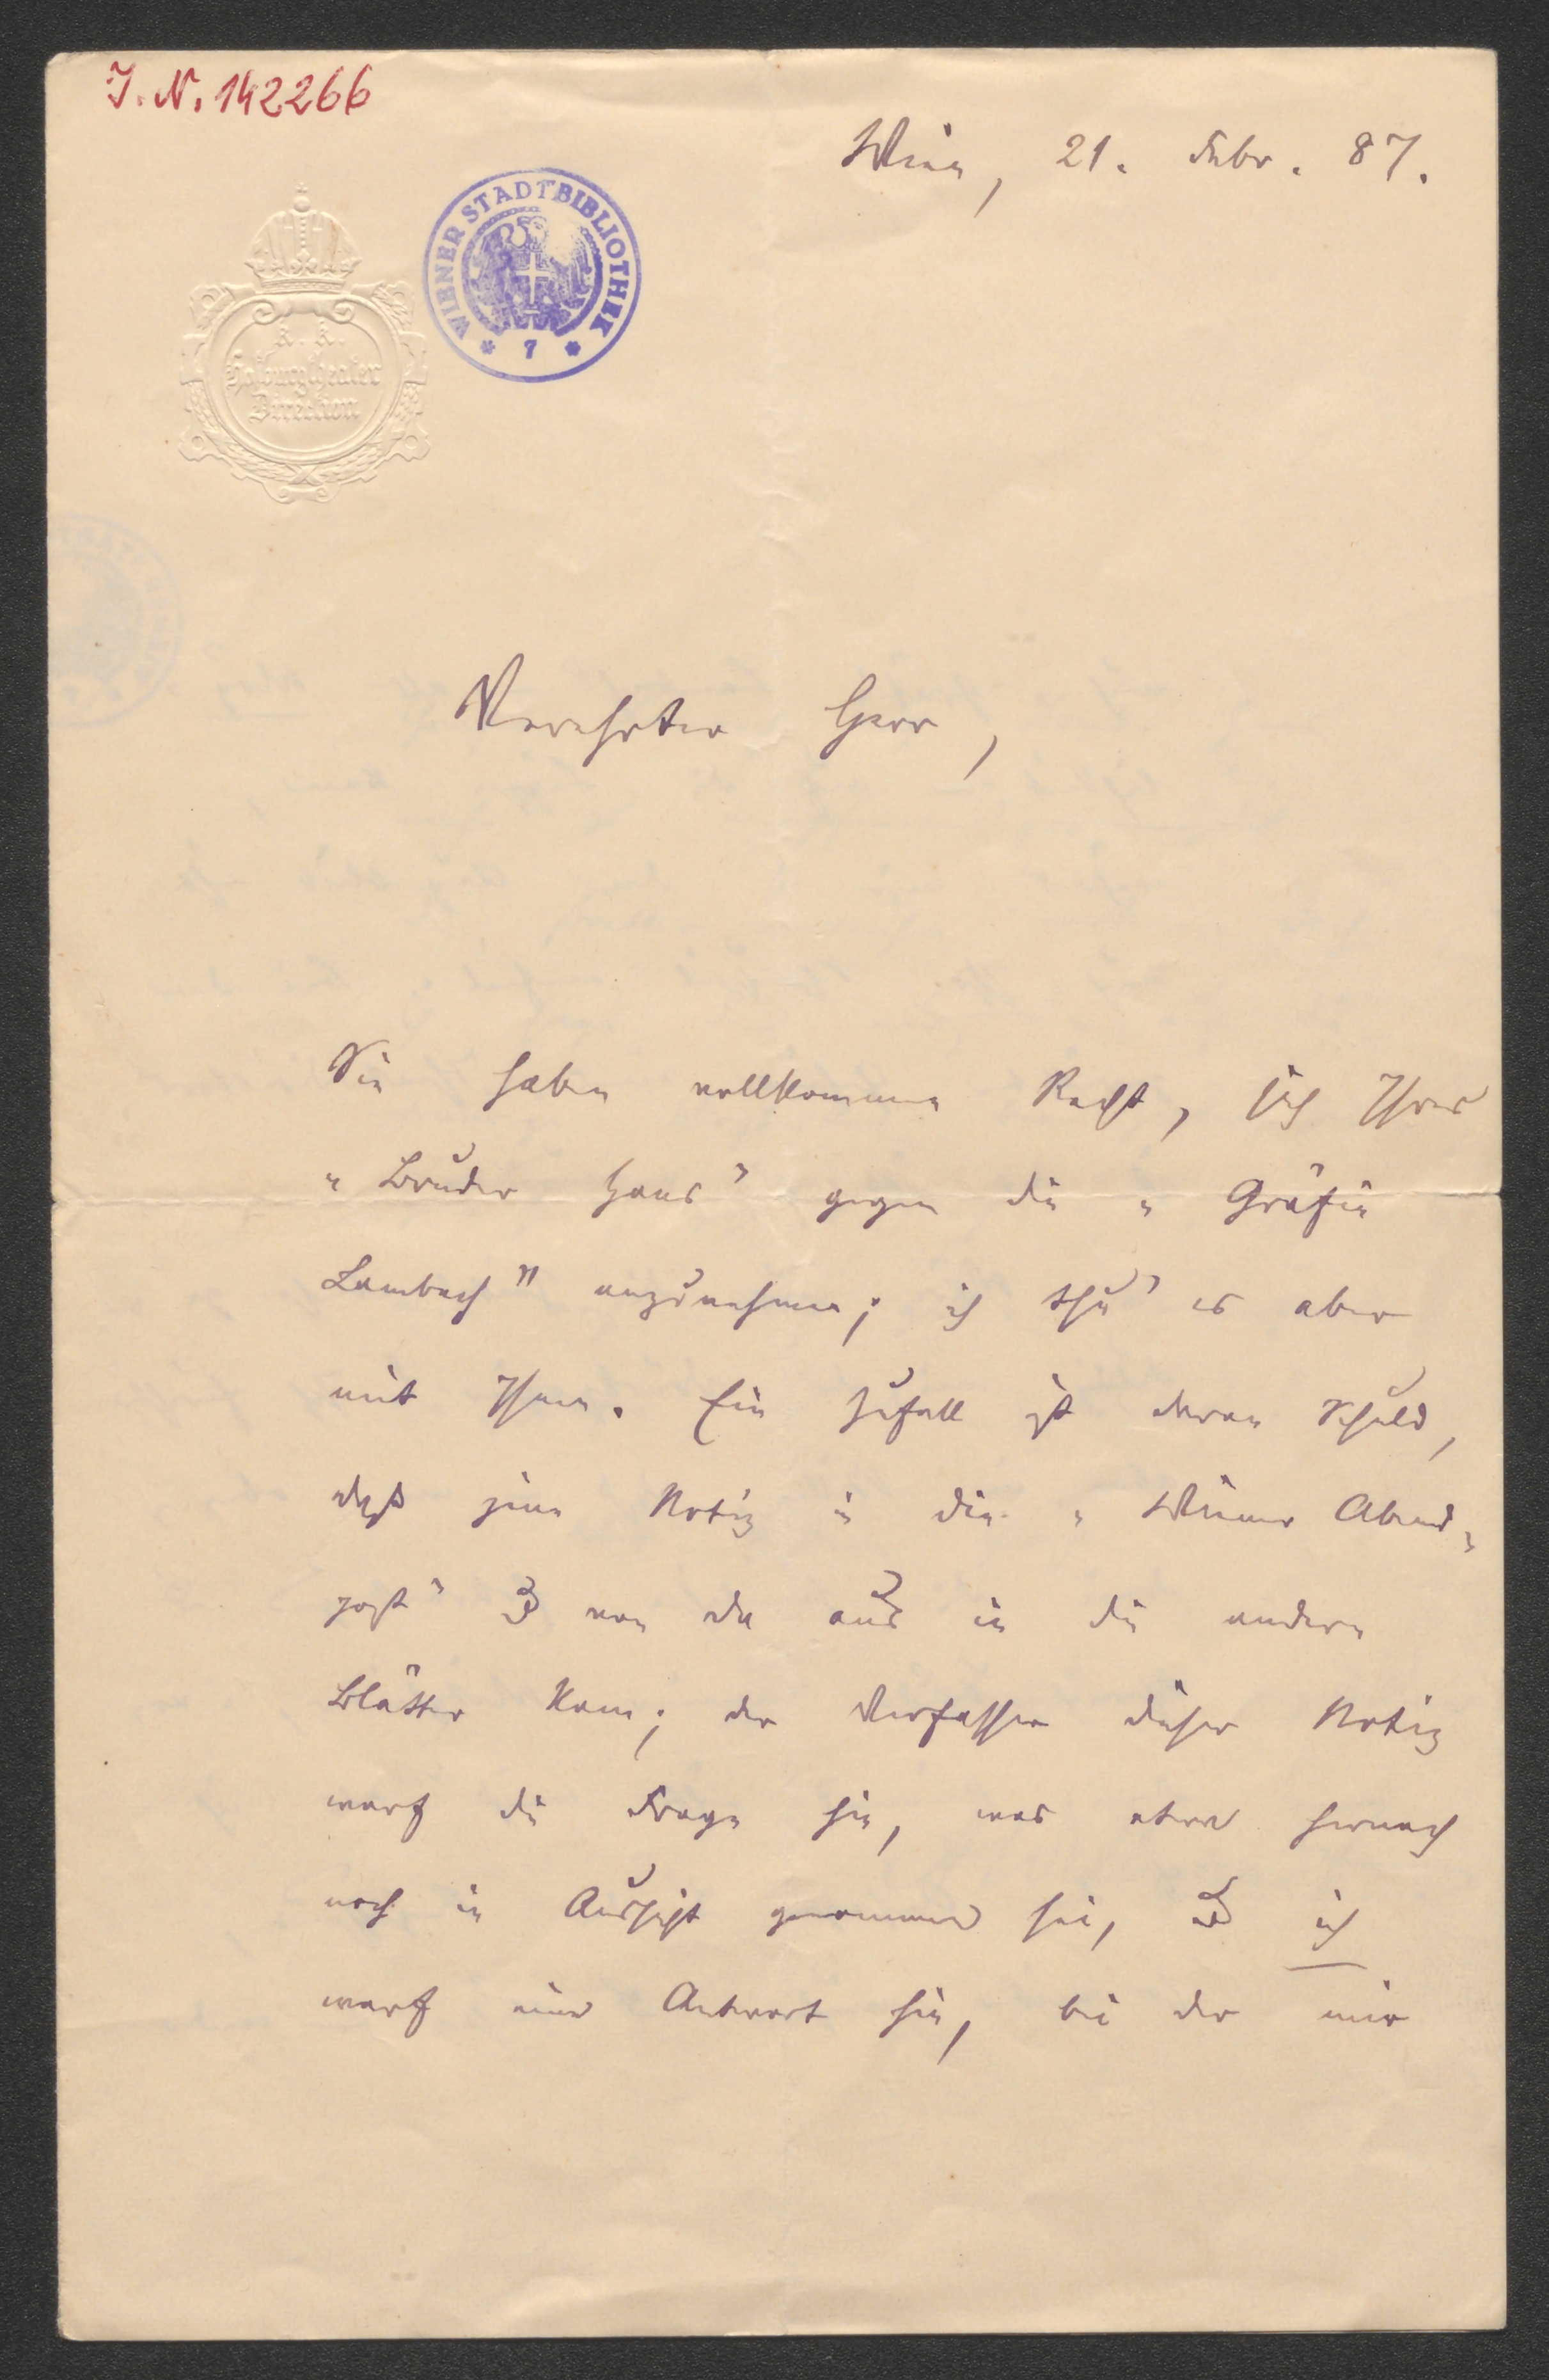 J. N. 142266
Wien, 21. Febr. 87.
WIENER STADTBIBLIOTHEK
* 7 *
K. K.
Hofburgtheater
Direction
Verehrter Herr,
Sie haben vollkommen Recht, sich Ihres
„Bruder Hans" gegen die „Gräfin
Lambach" anzunehmen; ich thu' es aber
mit Ihnen. Ein Zufall ist daran Schuld,
daß jene Notiz in die „Wiener Abend„
post" & von da aus in die andern
Blätter kam; der Verfasser dieser Notiz
warf die Frage hin, was etwa hernach
noch in Aussicht genommen sei, & ich
warf eine Antwort hin, bei der mir